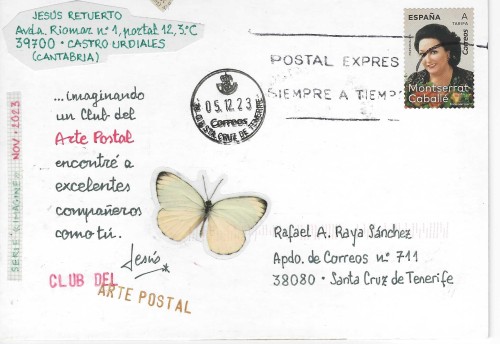 JESÚS RETUERTO
Avda. Riomar nº 1, portal 12, 3ºC
39700 · CASTRO URDIALES
(CANTABRIA)
ESPAÑA
A
TARIFA
Correos
Montserrat
Caballé
POSTAL EXPRES
SIEMPRE A TIEMP
05.12.23
Correos
STA. CRUZ DE TENERIFE
SERIE: IMAGINE NOV. 2023
...imaginando
un Club del
Arte Postal
encontré a
excelentes
compañeros
como tú..
Jesús
CLUB DEL
ARTE POSTAL
Rafael A. Raya Sánchez
Apdo. de Correos nº 711
38080 · Santa Cruz de Tenerife